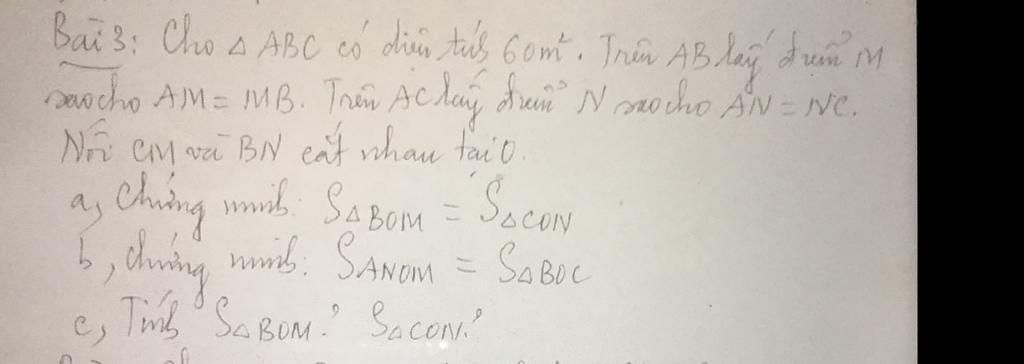 Bài 3: Cho △ ABC có diện tích 60m². Trên AB lấy điểm M
sao cho AM = MB. Trên AC lấy điểm N sao cho AN = NC.
Nối CM và BN cắt nhau tại O.
a, Chứng minh: S△BOM = S△CON
b, Chứng minh: SANOM = S△BOC
c, Tính S△BOM? S△CON?